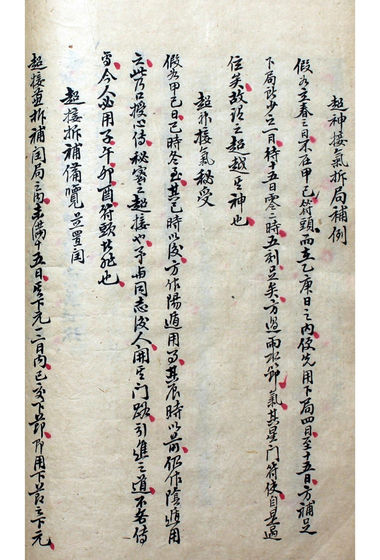 超神接氣拆局補例
假如立春之日不在甲己符頭而在乙庚日之內使先用下局四日至十五日方補足
下局改少之二月待十五日零二時五刻足矣方過雨水節氣其星門符使自是過
住矣故謂之超越星神也
超神接氣秘受
假如甲己日巳時冬至其巳時以後方作陽遁用事其辰時以前仍作陰遁用
云此乃口授心傳秘密之超接也予與同志後人開生門路引進之道不吝傳
留今人必用子午卯酉符頭者非也
超接拆補備覽並置閏
超接並拆補閏局之內未滿十五日是下元二日內已交下節即用下節之下元